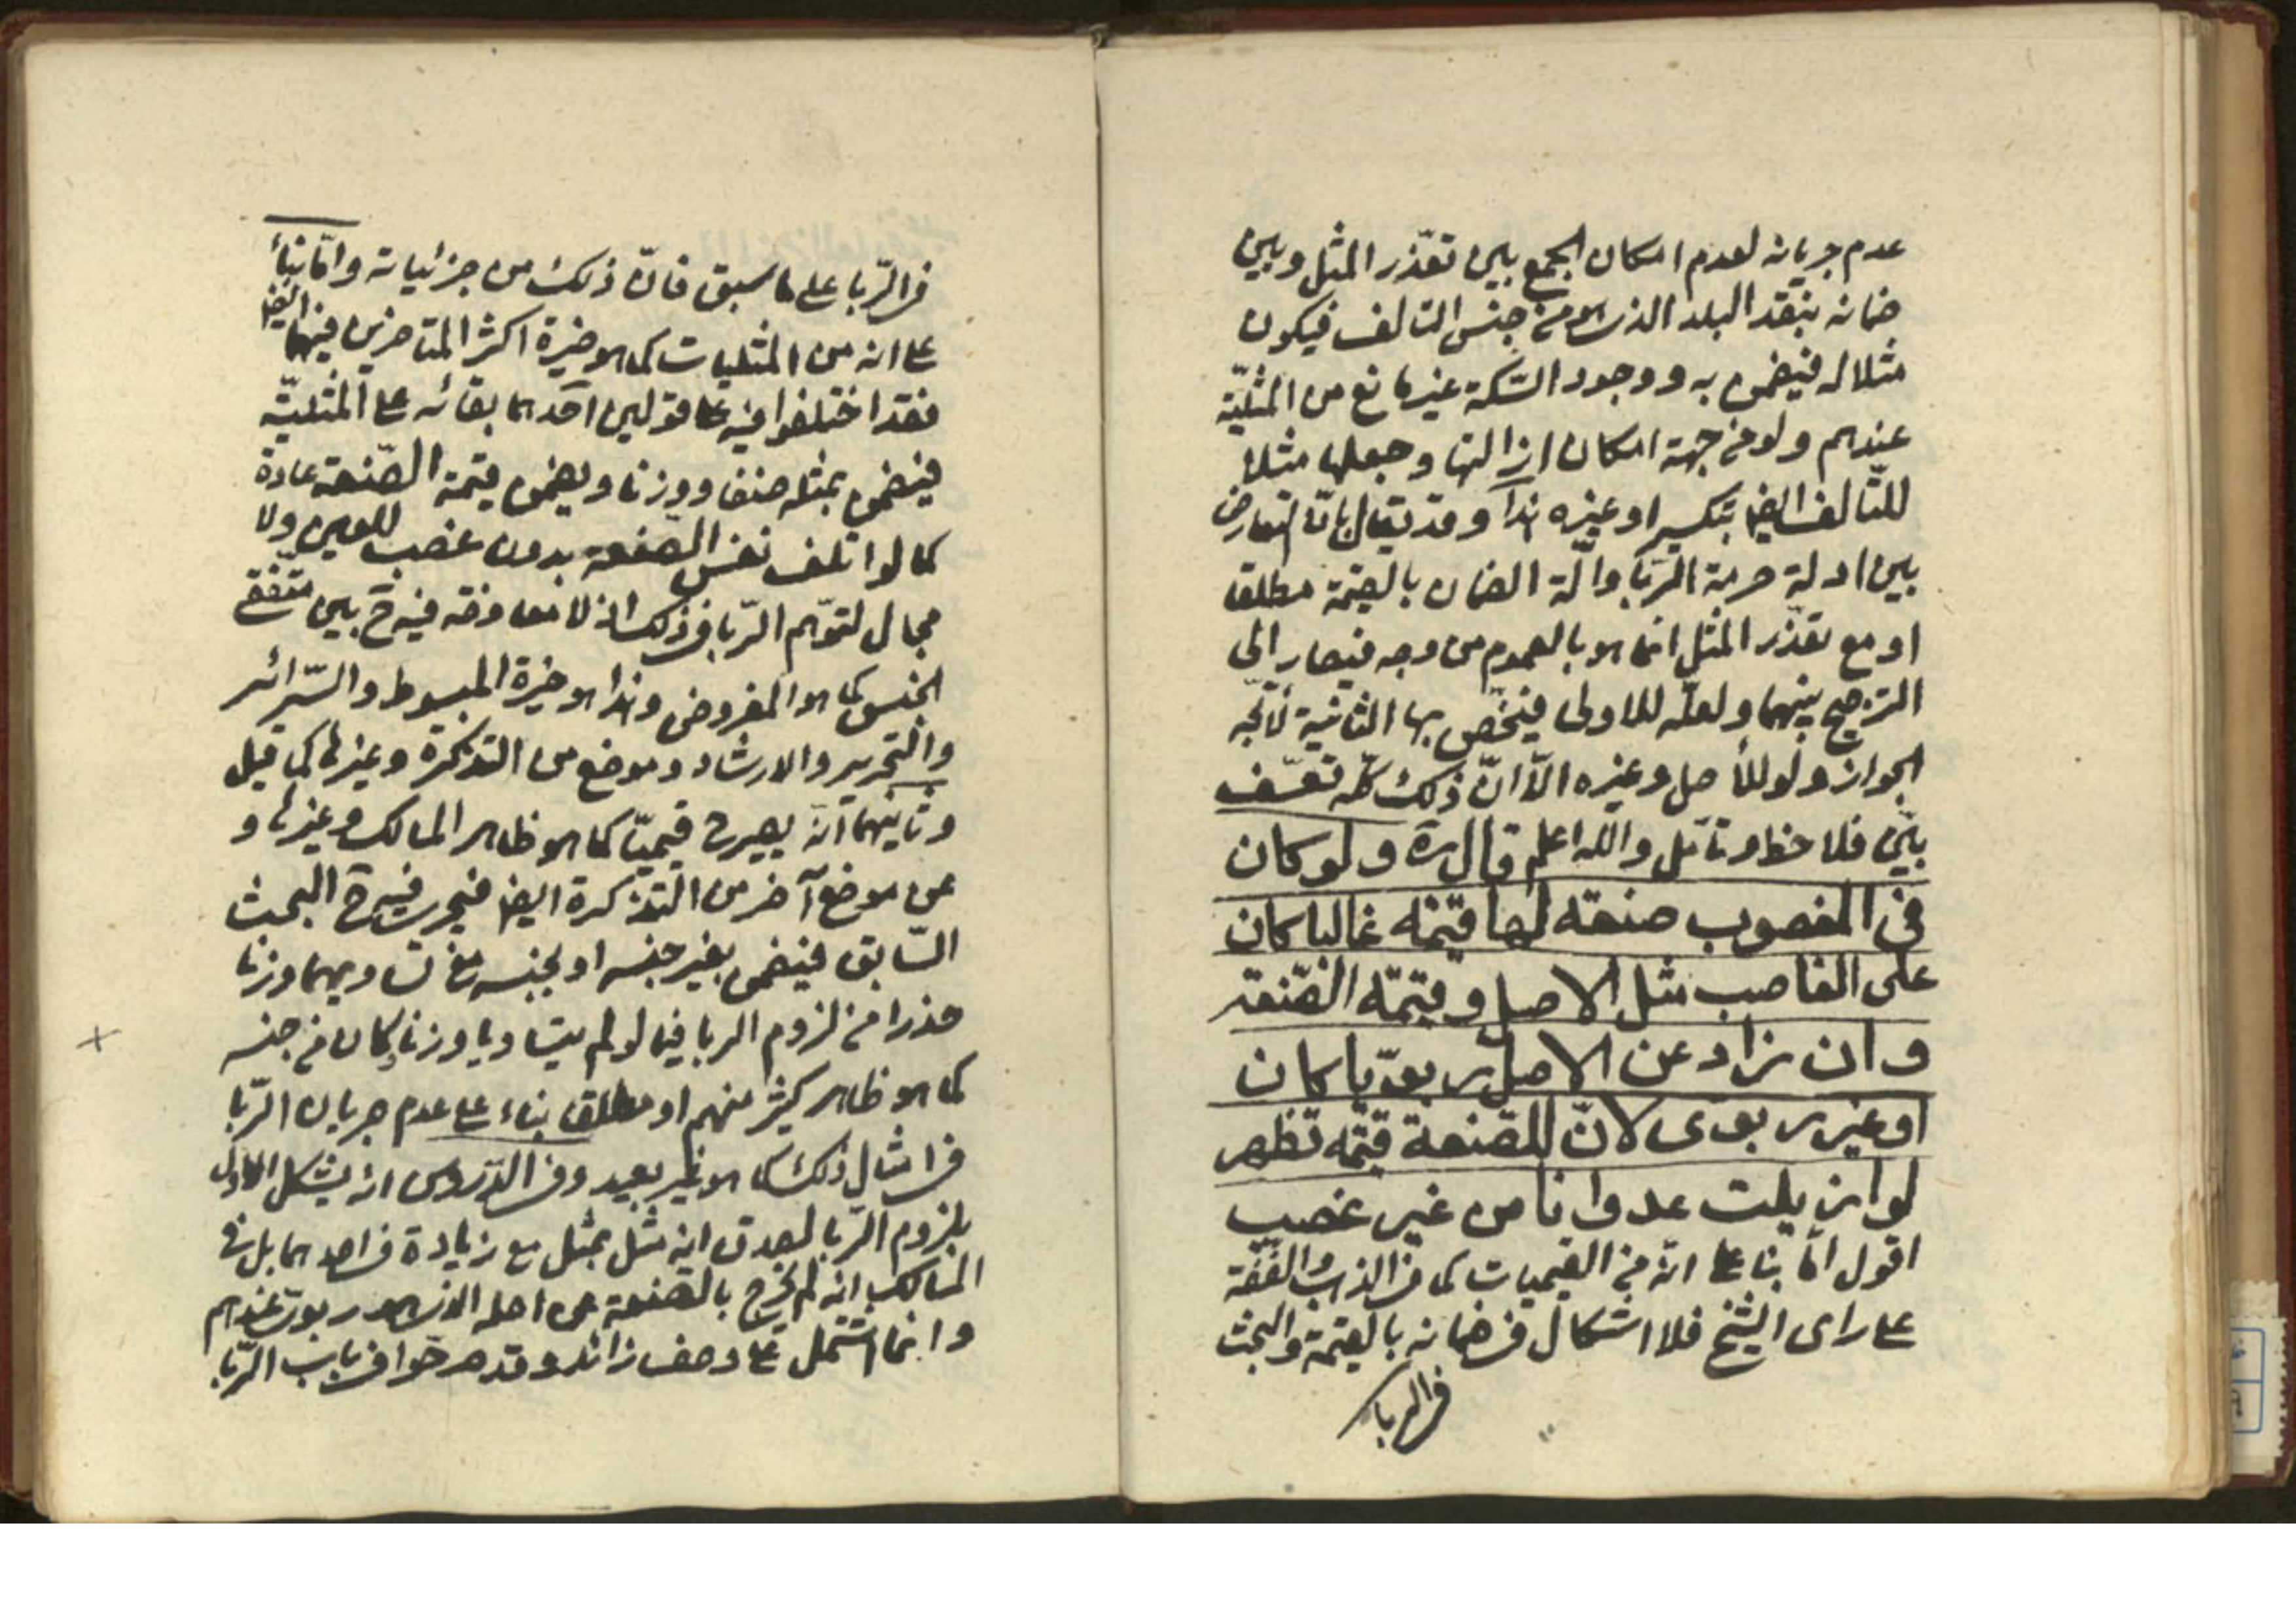 عدم جريانه لعدم امكان الجمع بين تعذّر المثل وبين
ضمانه بنقد البلد الذى هو من جنس التالف فيكون
مثلا له فيضمن به ووجود السّكة غير مانع من المثليّة
عندهم ولو من جهة امكان ازالتها وجعلها مثلا
للتّالف ايضا بتكسير او غيره هذا وقد يقال بانّ التعارض
بين ادلة حرمة الرّبا وادلّة الضمان بالقيمة مطلقا
او مع تعذّر المثل انما هو بالعموم من وجه فيصار الى
الترجيح بينهما ولعلّه للاولى فيخصّ بها الثانية
الجواز ولو للأصل وغيره الّا انّ ذلك كلّه تعسّف
بيّن فلاحظ وتأمّل والله اعلم قال ره ولو كان
فى المغصوب صنعة لها قيمة غالبا كان
على الغاصب مثل الاصل وقيمة الصّنعة
وان زاد عن الاصل ربويّا كان
او غير ربوى لانّ للصّنعة قيمة تظهر
لو ازيلت عدوانا من غير غصب
اقول امّا بنا على انّه من القيميات كما فى الذهب والفضّة
على راى الشيخ فلا اشكال فى ضمانه بالقيمة والبحث
فى الربا
فى الرّبا على ما سبق فانّ ذلك من جزئياته وامّا بناءً
على انه من المثليات كما هو خيرة اكثر المتاخرين فيهما ايضا
فقد اختلفوا فيه على قولين احدهما بقائه على المثليّة
فيضمن بمثله صنفا ووزنا ويضمن قيمة الصّنعة عادة
كما لو اتلف نفس الصنعة بدون غصب للعين ولا
مجال لتوهّم الرّبا فى ذلك اذ لا معاوضة فيه ح بين متفقى
الجنس كما هو المفروض وهذا هو خيرة المبسوط والسّرائر
والتحرير والارشاد وموضع من التذكرة وغيرها كما قيل
وثانيهما انّه يصير قيميّا كما هو ظاهر المسالك وغيرها و
عن موضع آخر من التذكرة ايضا فيجرى فيه ح البحث
السّابق فيضمن بغير جنسه او بجنسه مع تساويهما وزنا
حذرا من لزوم الربا فيما لو لم يتساويا وزنا وكان من جنسه
كما هو ظاهر كثير منهم او مطلقا بناء على عدم جريان الرّبا
فى امثال ذلك كما هو غير بعيد وفى الدّروس انه يشكل الاول
بلزوم الرّبا لصدق انه مثل بمثل مع زيادة فى احدهما بل فى
المسالك انه لم يخرج بالصنعة عن اصله الذى هو ربوى عندهم
وانما اشتمل على وصف زائد وقد صرّحوا فى باب الرّبا